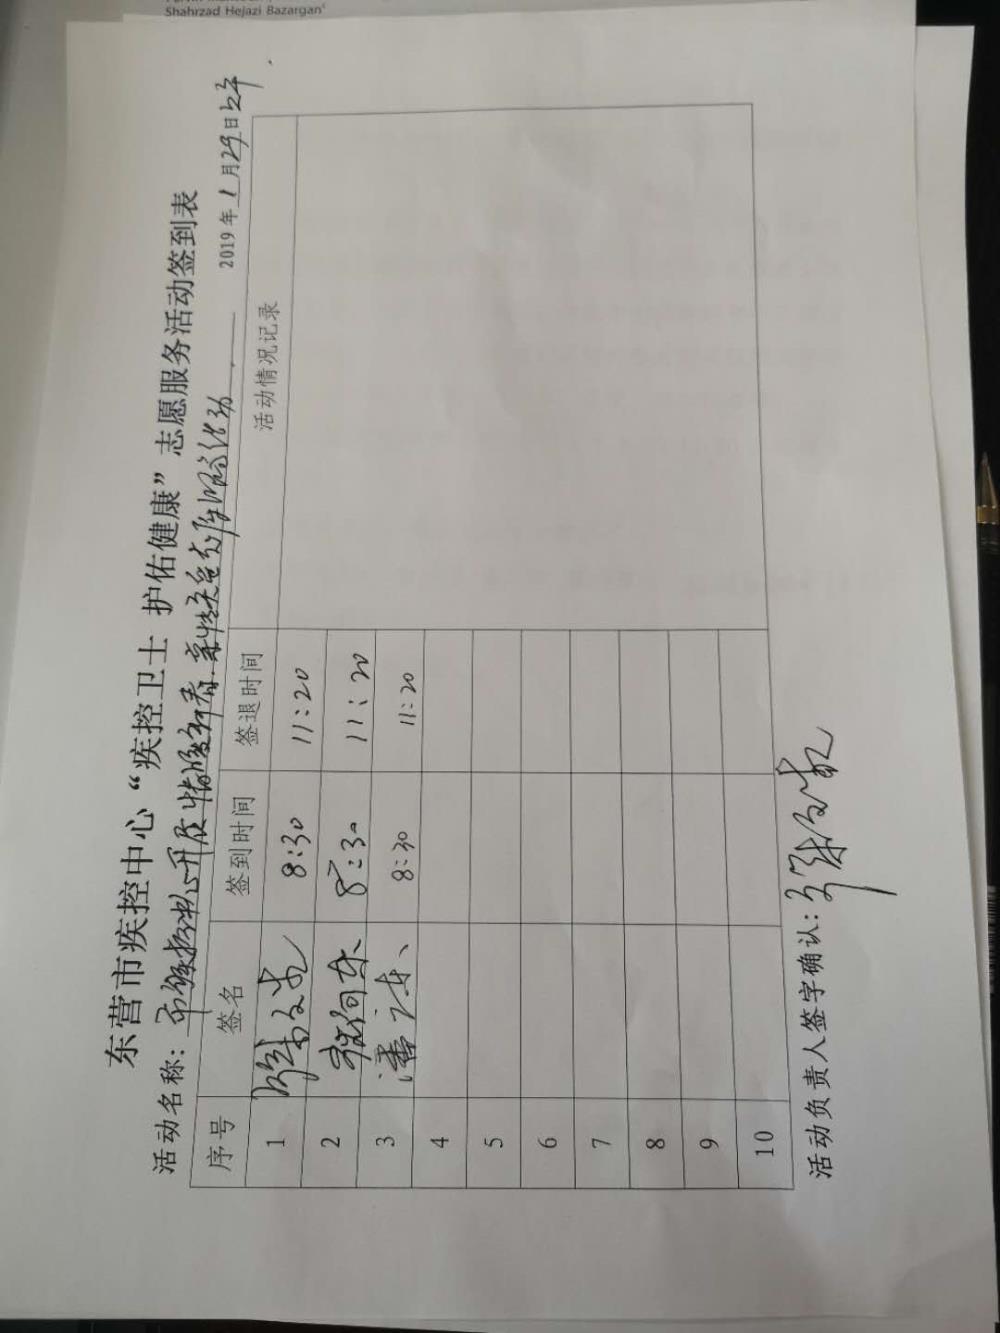 Shahrzad Hejazi Bazargan
东营市疾控中心“疾控卫士 护佑健康”志愿服务活动签到表
活动名称：市疾控中心开展情暖新春.亲情关爱志愿服务活动
2019年1月29日上午
序号 签名 签到时间 签退时间 活动情况记录
1 8:30 11:20
2 8:30 11:20
3 8:30 11:20
4
5
6
7
8
9
10
活动负责人签字确认：